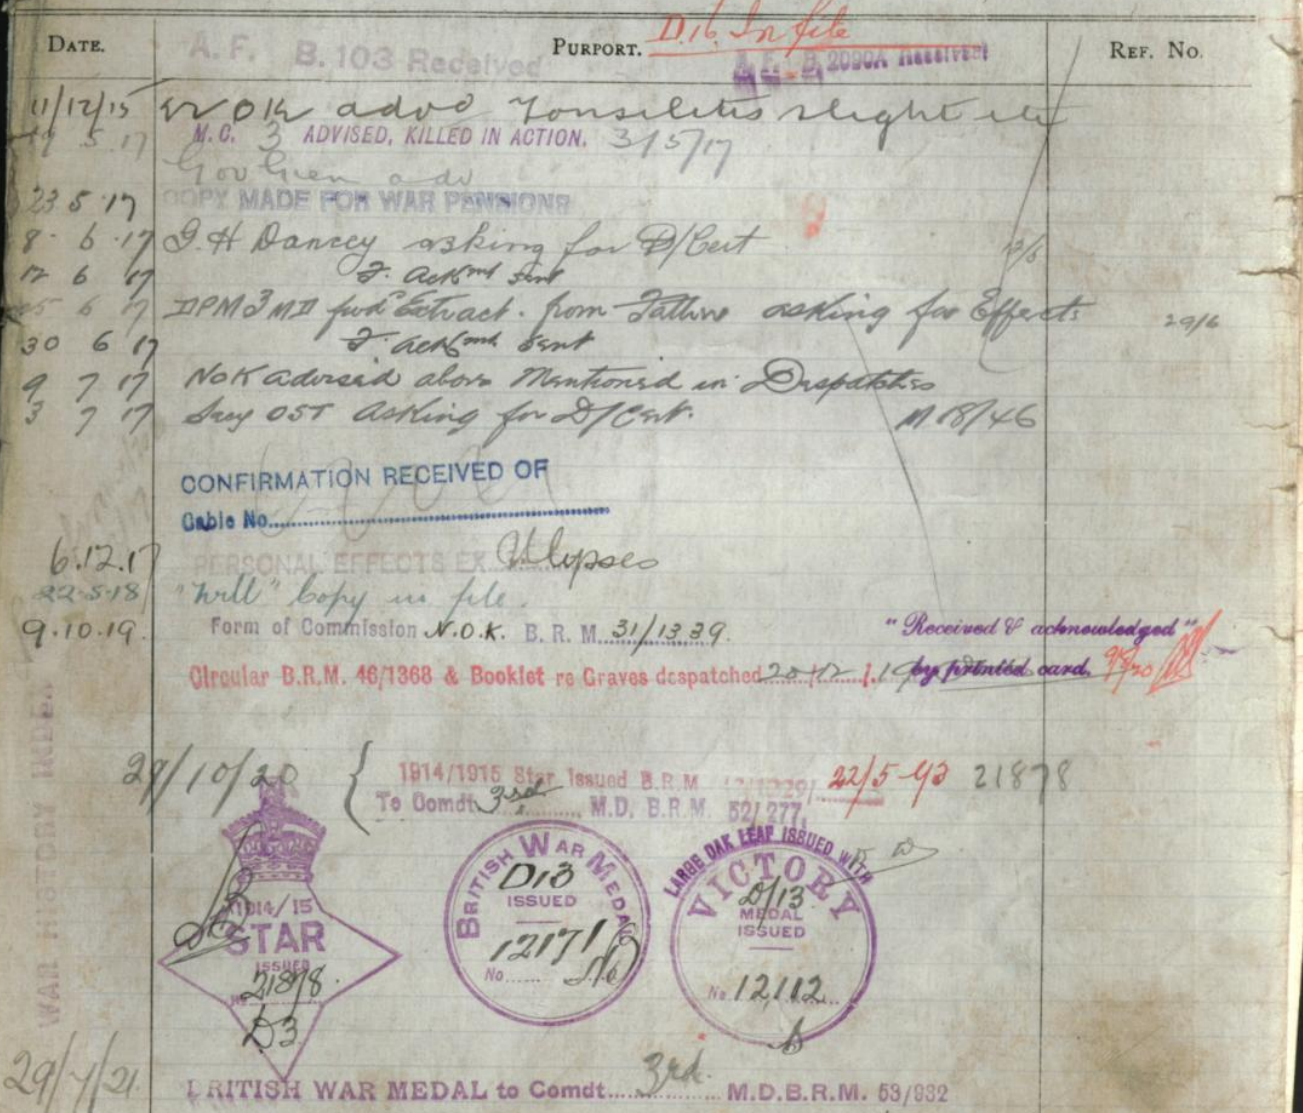 D.16 In file
DATE. PURPORT. REF. No.
A. F. B. 103 Received
A. F. B. 2090A Received
11/12/15 N OK advd Tonsilitis slight
5.17 M.C. 3 ADVISED, KILLED IN ACTION. 3/5/17
Gov Gen adv
23 5 17 COPY MADE FOR WAR PENSIONS
8. 6. 17 G. H Dancey asking for D/Cert 12/6
12 6 17 F. Ackmt sent
25 6 17 DPM 3 MD fwd Extract. from Father asking for Effects 29/6
30 6 17 F. Ackmt sent
9 7 17 NoK advised above Mentioned in Despatches
3 7 17 Secy OST asking for D/Cert. M 18/46
CONFIRMATION RECEIVED OF
Cable No.
6.12.17 PERSONAL EFFECTS EX Ulysses
22.5.18 "Will" Copy in file.
9.10.19. Form of Commission N.O.K. B. R. M. 31/1339.
"Received & acknowledged"
Circular B.R.M. 46/1368 & Booklet re Graves despatched 20/12/19
by printed card.
29/10/20 { 1914/1915 Star Issued B.R.M 22/5-43 21878
To Comdt 3rd M.D. B.R.M. 52/277.
1914/15
STAR
ISSUED
No 21878.
D3
BRITISH WAR MEDAL
D13
ISSUED
12171
No
LARGE OAK LEAF ISSUED WITH
VICTORY
D/13
MEDAL
ISSUED
No 12,112
WAR HISTORY INDEX
29/7/21. BRITISH WAR MEDAL to Comdt 3rd. M.D.B.R.M. 53/932